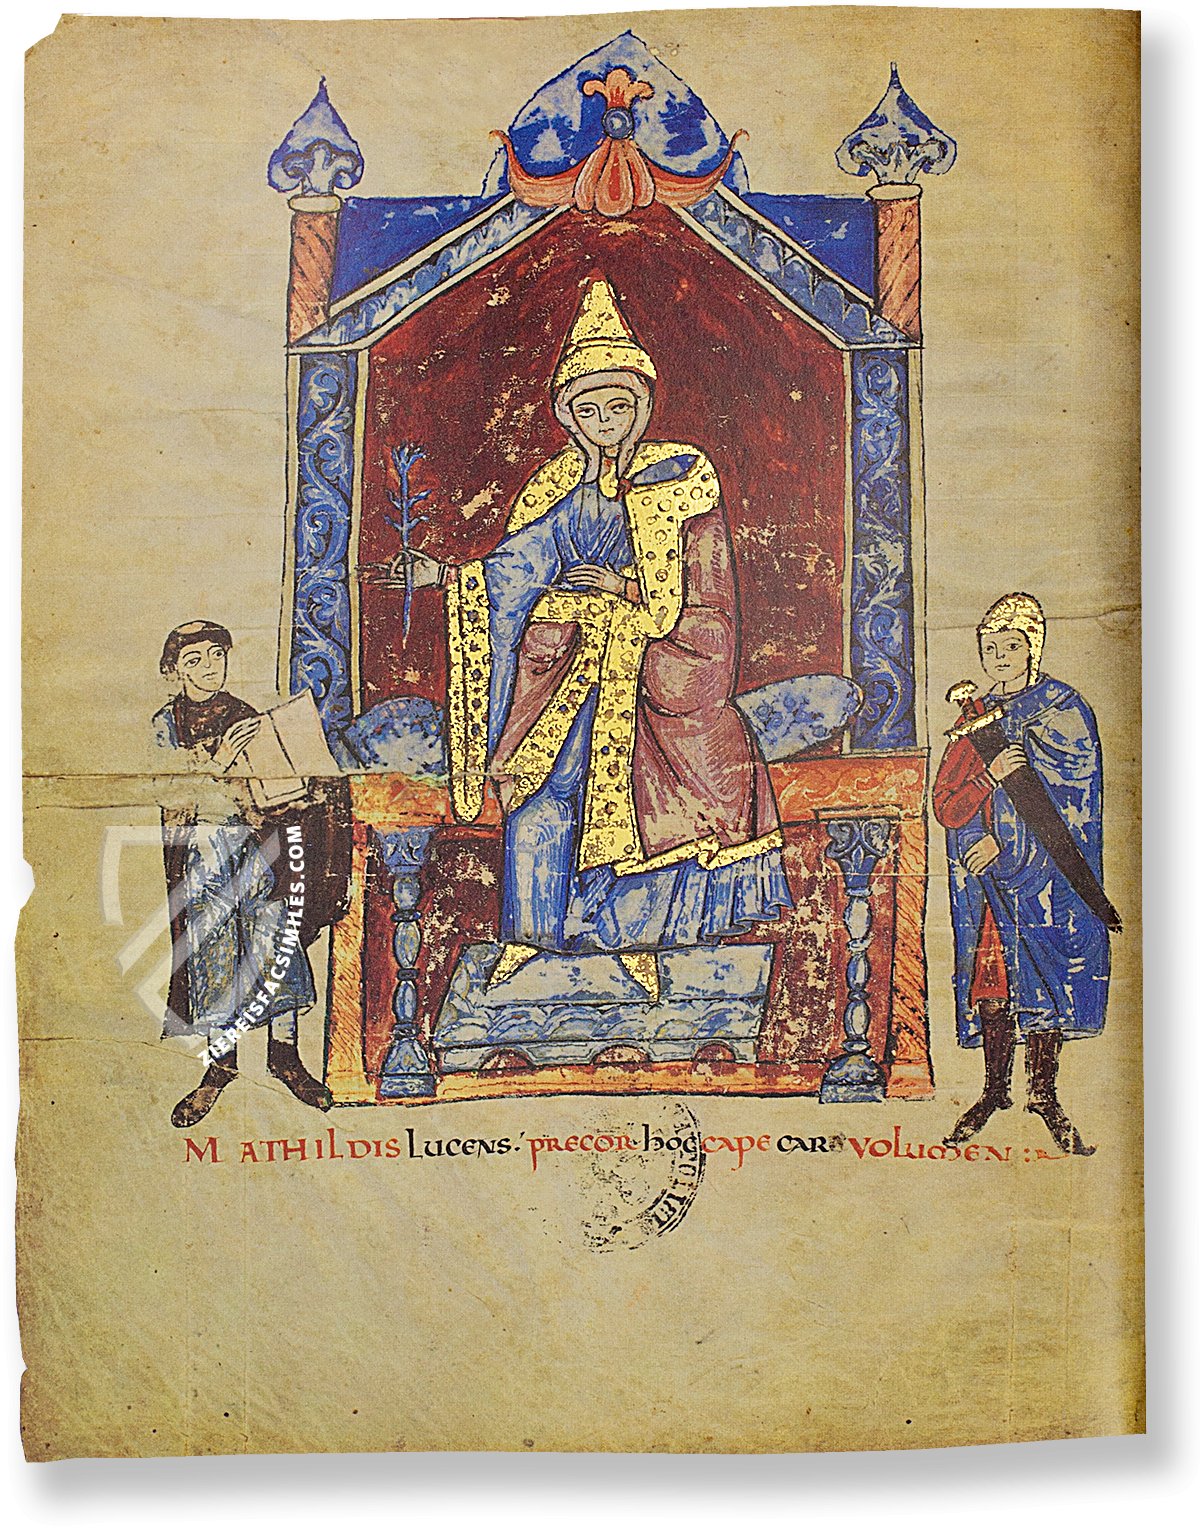 MATHILDIS LUCENS: PRECOR HOC CAPE CARA VOLUMEN:
ZIEREISFACSIMILES.COM